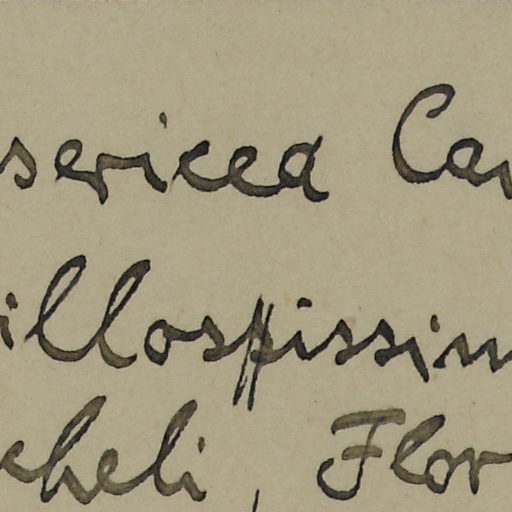 sericea Car
illosissim
cheli, Flor